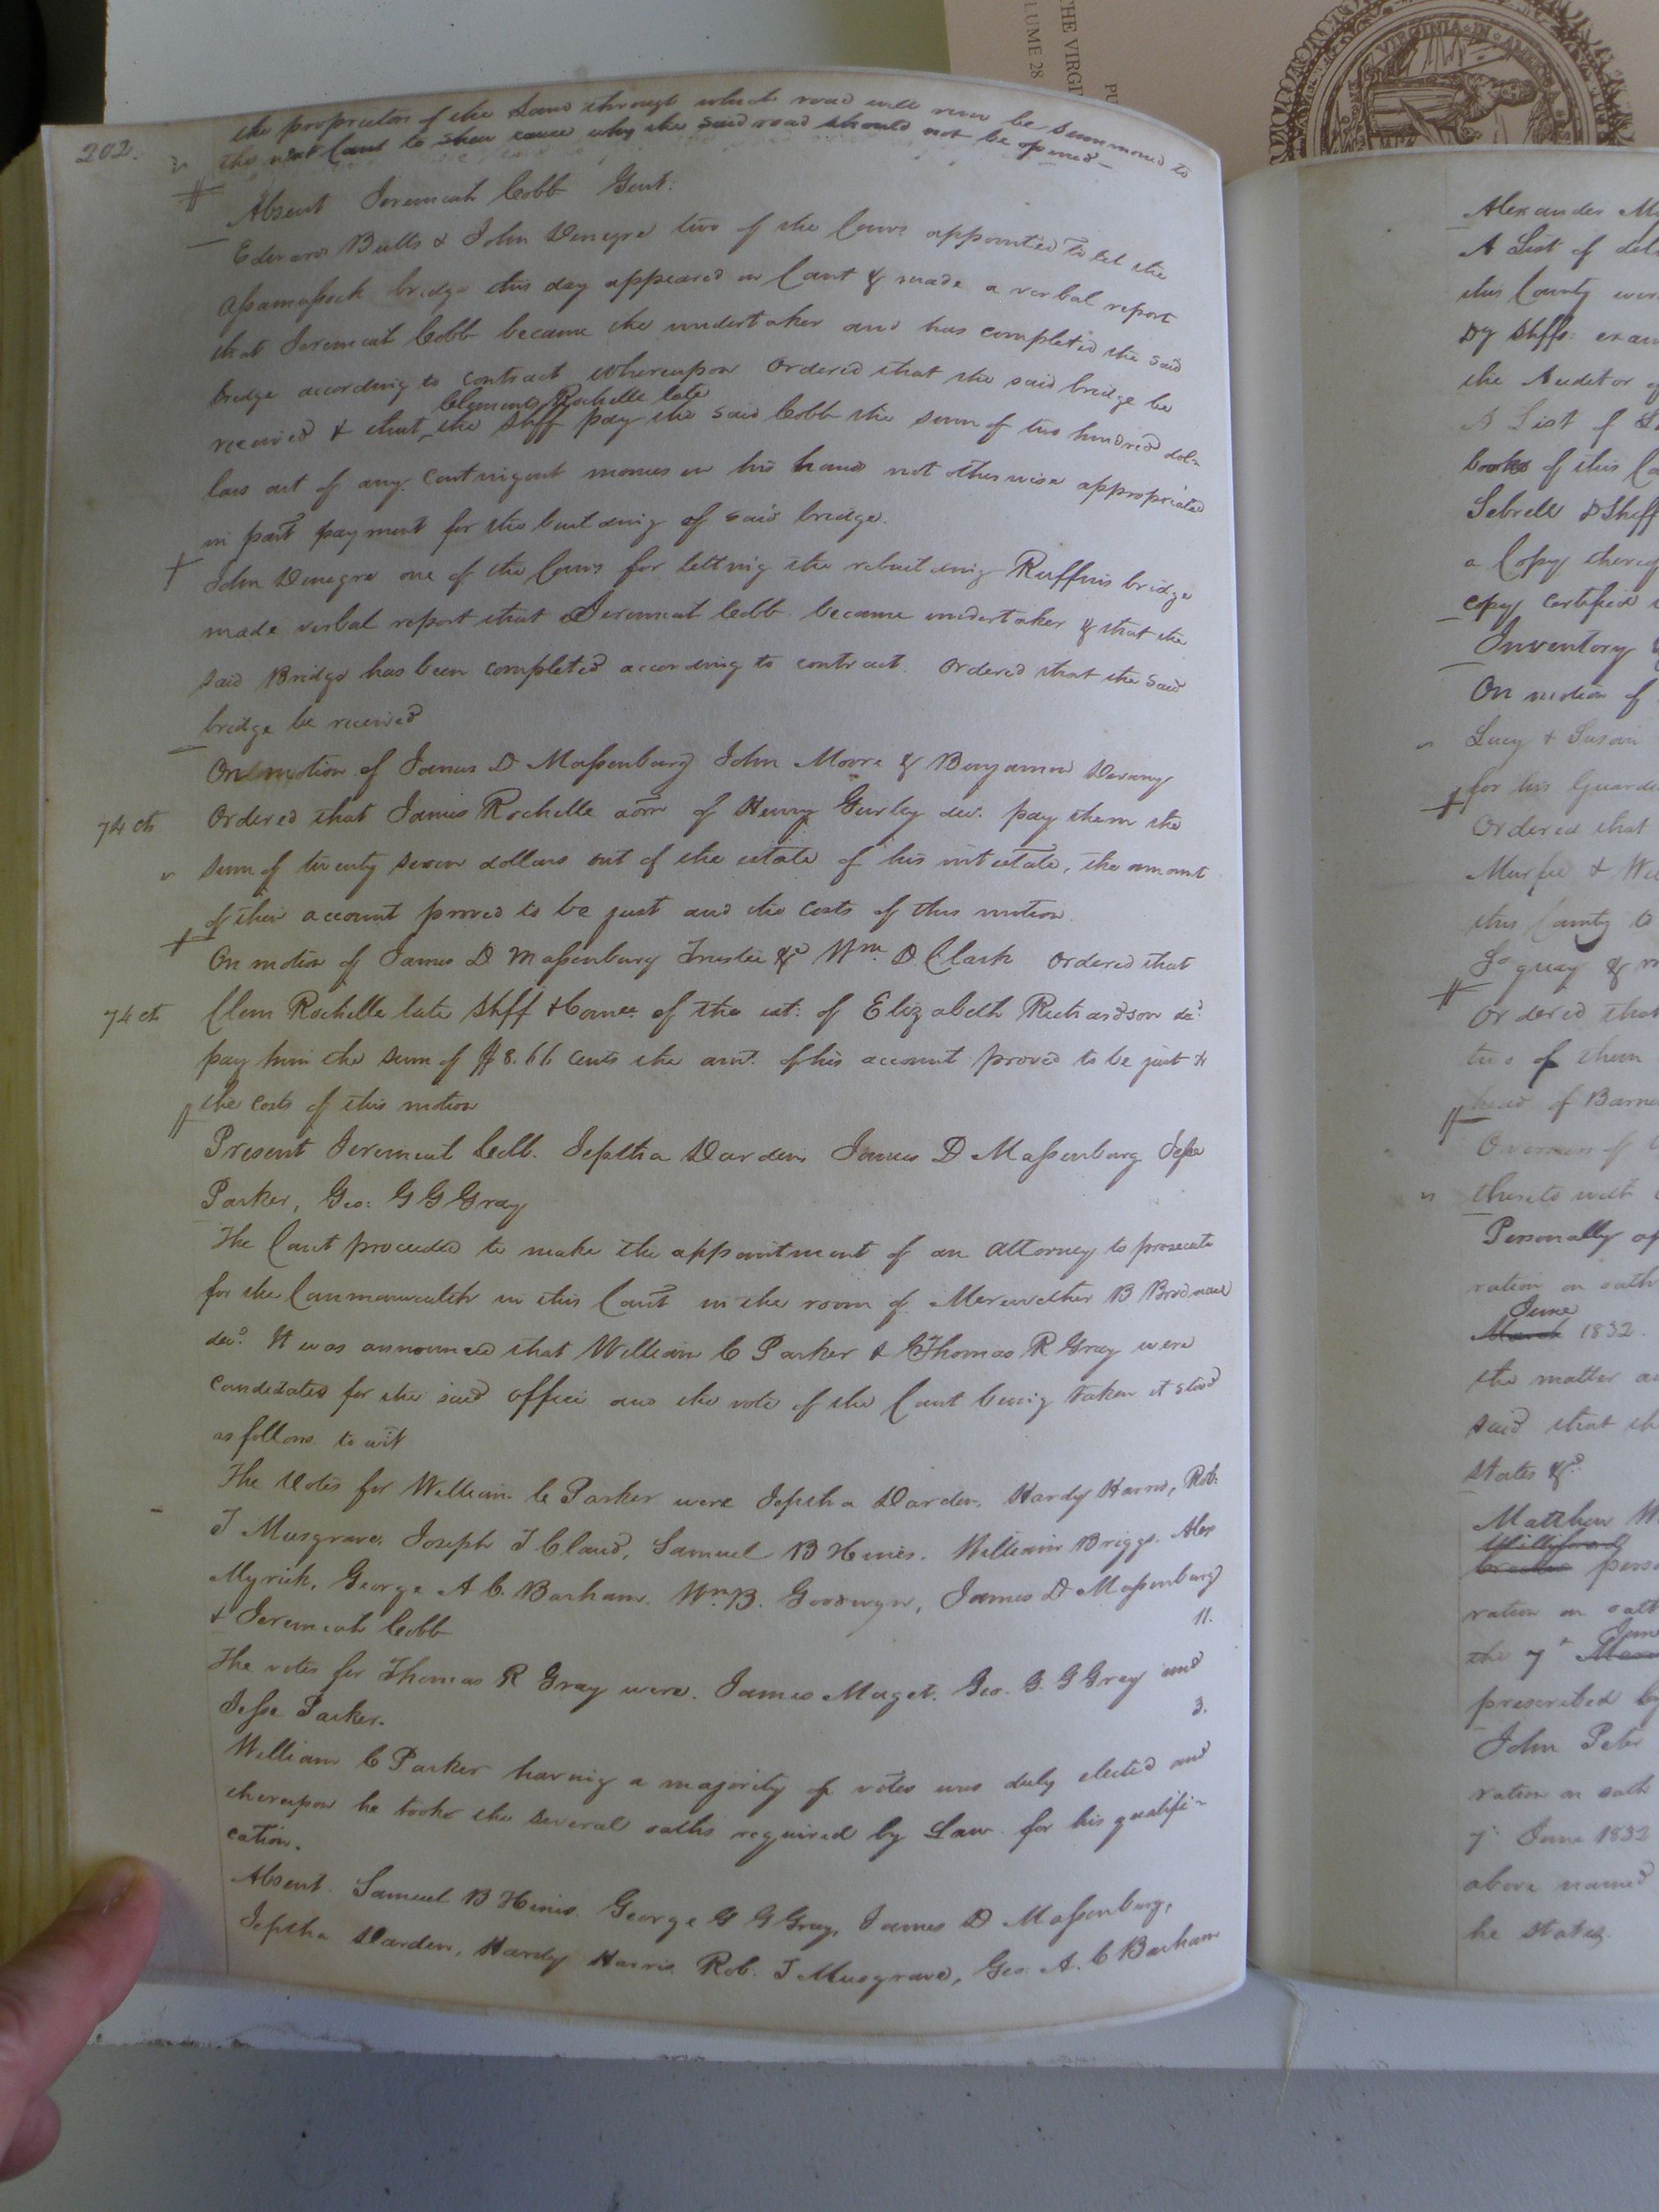 THE VIRGI
LUME 28
PU
VIRGINIA · IN · A
202.
the proprietors of the Land through which road will run be summoned to
the next Court to shew cause why the said road should not be opened —
Absent Jeremiah Cobb Gent:
Edward Butts & John Vinegre two of the Comrs appointed to let the
Assamossock bridge this day appeared in Court & made a verbal report
that Jeremiah Cobb became the undertaker and has completed the said
bridge according to contract whereupon ordered that the said bridge be
Clements Rochelle late
received & that the Shff pay the said Cobb the sum of two hundred dol-
lars out of any Contingent monies in his hands not otherwise appropriated
in part payment for the building of said bridge.
John Vinegre one of the Comrs for letting the rebuilding Ruffins bridge
made verbal report that Jeremiah Cobb became undertaker & that the
said Bridge has been completed according to contract. Ordered that the said
bridge be received
On motion of James D Massenburg John Moore & Benjamin Devany
74 cts Ordered that James Rochelle adm of Henry Gurley dec. pay them the
sum of twenty seven dollars out of the estate of his intestate, the amount
of their account proved to be just and the costs of this motion.
On motion of James D Massenburg Trustee &c Wm. D Clark ordered that
74 cts Clem Rochelle late Shff & Comee of the est: of Elizabeth Richardson dec.
pay him the sum of $8.66 Cents the amt. of his account proved to be just &
the costs of this motion
Present Jeremiah Cobb. Jeptha Darden, James D Massenburg Jesse
Parker, Geo: G G Gray
The Court proceeded to make the appointment of an attorney to prosecute
for the Commonwealth in this Court in the room of Meriwether B Brodnax
dec.d It was announced that William C Parker & Thomas R Gray were
candidates for the said office and the vote of the Court being taken it stood
as follows to wit
The Votes for William C Parker were Jeptha Darden, Hardy Harris, Rob:
T Musgrave, Joseph T Claud, Samuel B Hines. William Briggs. Alex
Myrick, George A C. Barham. Wm. B. Goodwyn, James D Massenburg
& Jeremiah Cobb 11.
The votes for Thomas R Gray were. James Maget. Geo. G. G Gray and
Jesse Parker. 3.
William C Parker having a majority of votes was duly elected and
thereupon he tooke the several oaths required by Law for his qualifi-
cation.
Absent. Samuel B Hines. George G G Gray, James D Massenburg,
Jeptha Darden, Hardy Harris. Rob. T Musgrave, Geo. A. C Barham
Alexander
A List of
this County
Dy Shffs:
the Auditor
A List of
books of this
Sebrell D Shff
a Copy thereof
copy certified
Inventory
On motion of
Lucy & Susan
for his Guardi
Ordered that
Murfee &
this County to
quay &
Ordered that
two of them
head of Barne
Overseers of
thereto with
Personally ap
ration on oath
June
March 1832.
the matter
said that
states &c
Matthew
Williford
pers
ration on oath
June
the 7
prescribed by
John Peter
ration on oath
7 June 1832
above named
he states